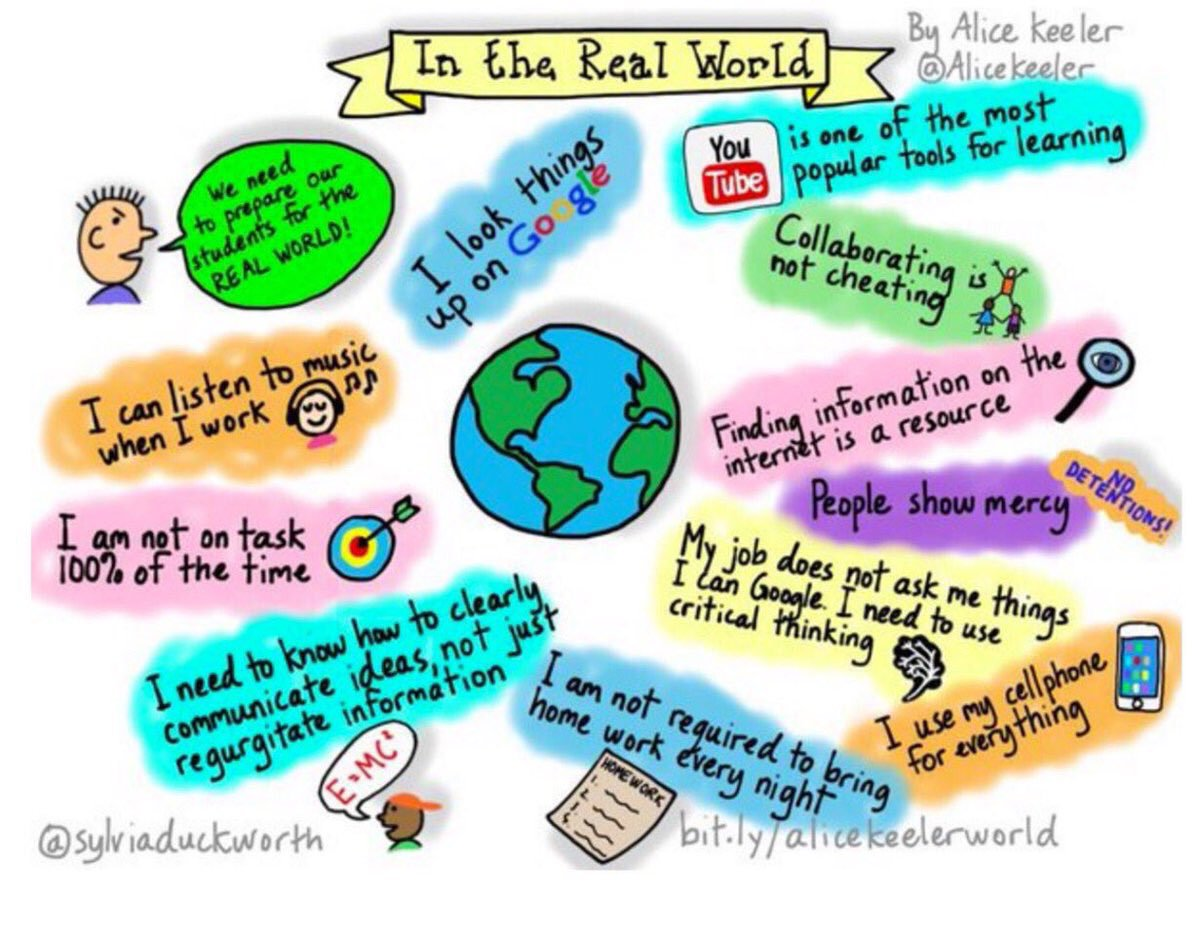 In the Real World
By Alice Keeler
@Alicekeeler
We need
to prepare our
students for the
REAL WORLD!
I look things
up on Google
You
Tube
is one of the most
popular tools for learning
Collaborating is
not cheating
I can listen to music
when I work
Finding information on the
internet is a resource
People show mercy
NO
DETENTIONS!
I am not on task
100% of the time
My job does not ask me things
I can Google. I need to use
critical thinking
I need to know how to clearly
communicate ideas, not just
regurgitate information
E=MC²
I am not required to bring
home work every night
HOMEWORK
1.
2.
3.
I use my cellphone
for everything
@sylviaduckworth
bit.ly/alicekeelerworld